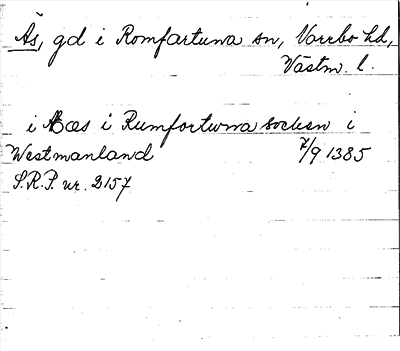 Ås, gd i Romfartuna sn, Norrbo hd,
Västm. l.
i Aæs i Rumfortuna socken i
Westmanland 7/9 1385
S.R.P. nr. 2157